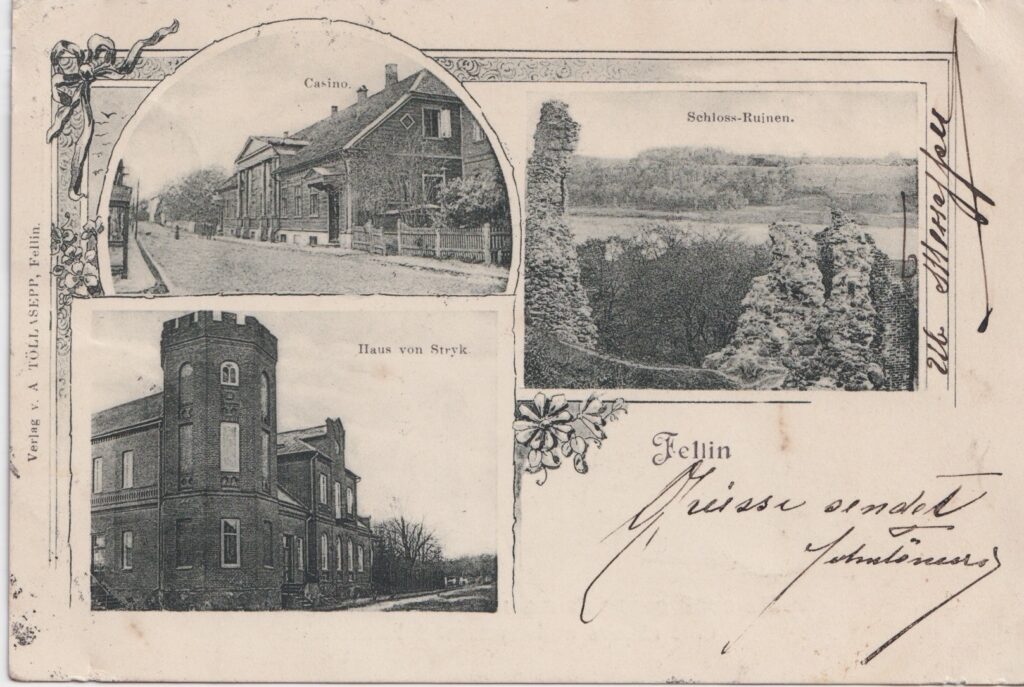 Casino.
Schloss-Ruinen.
Haus von Stryk.
Verlag v. A TÖLLASEPP, Fellin.
Fellin
Grüsse sendet